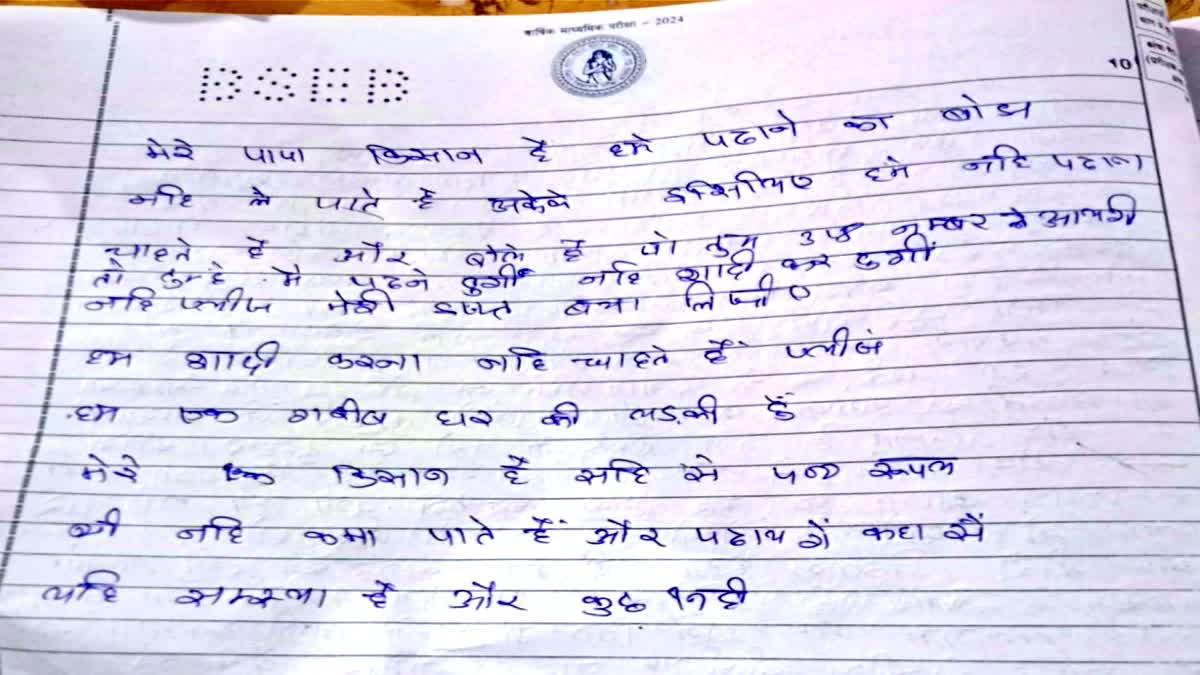 वार्षिक माध्यमिक परीक्षा - 2024
BSEB
10
मेरे पापा किसान है हमे पढाने का बोझ
नहि ले पाते है इसिलिए हमे नहि पढाना
चाहते है और बोले है जो तुम नम्बर से आयगी
तो तुम्हे मै पढने दुगीं नहि शादी कर दुगीं
नहि प्लीज मेरी इज्जत बचा लिजीए
हम शादी करना नहि चाहते हैं प्लीजं
हम एक गरीब घर की लड़की हैं
मेरे एक किसान हैं सहि से
भी नहि कमा पाते हैं और पढायगें कहा सें
यहि समस्या है और कुछ नही